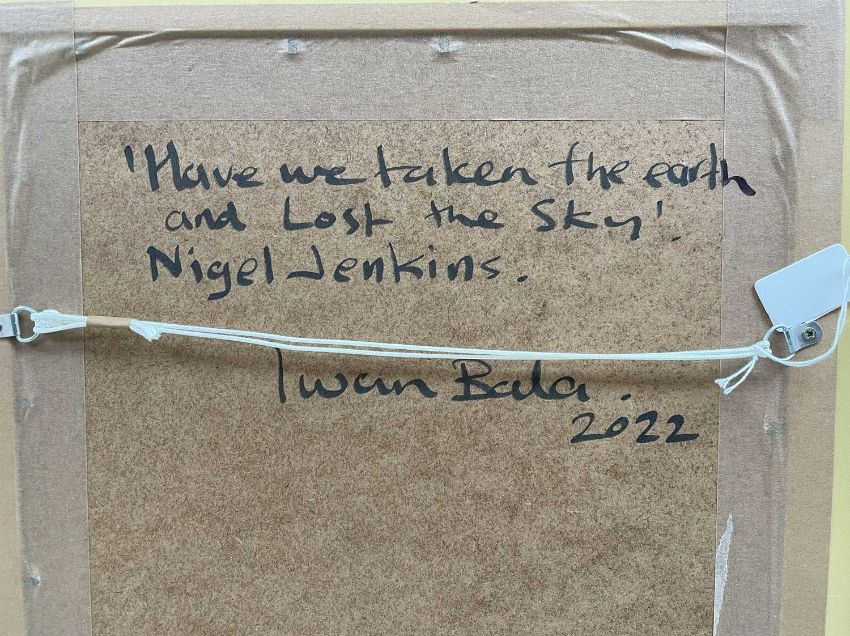 'Have we taken the earth
and Lost the Sky'.
Nigel Jenkins.
Iwan Bala.
2022